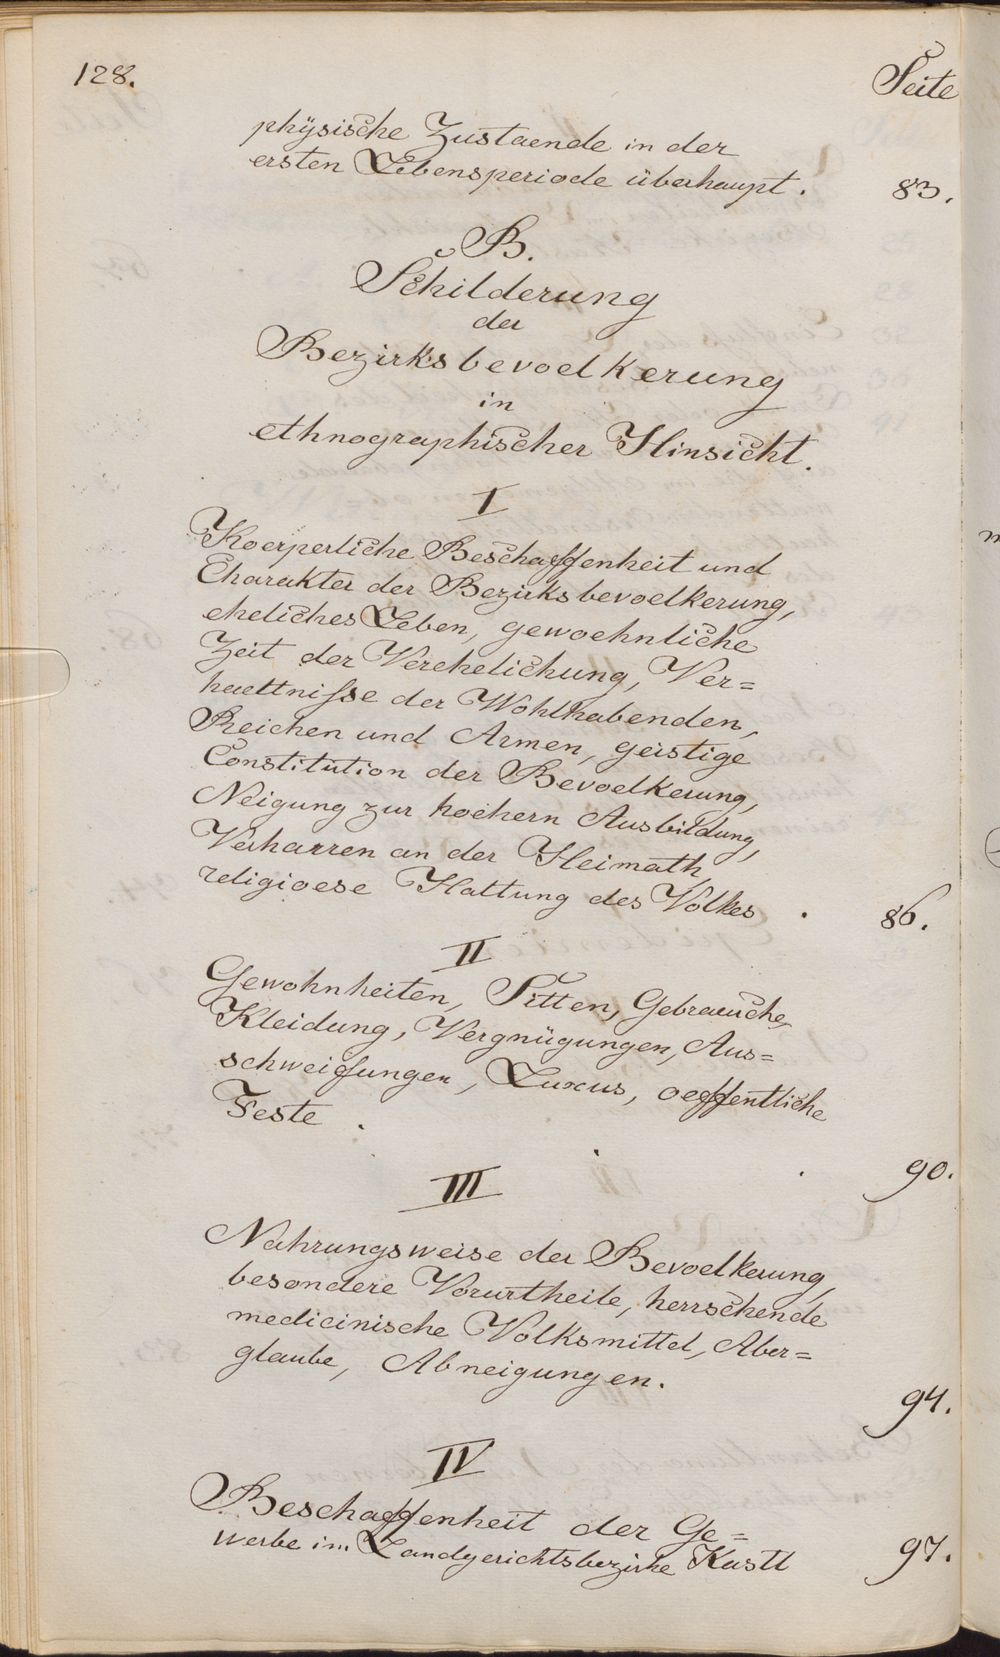 128.
Seite
physische Zustaende in der
ersten Lebensperiode überhaupt. 83.
B.
Schilderung
der
Bezirksbevoelkerung
in
ethnographischer Hinsicht.
I
Koerperliche Beschaffenheit und
Charakter der Bezirksbevoelkerung,
eheliches Leben, gewoehnliche
Zeit der Verehelichung, Ver=
haeltnisse der Wohlhabenden,
Reichen und Armen, geistige
Constitution der Bevoelkerung,
Neigung zur hoehern Ausbildung,
Verharren an der Heimath,
religioese Haltung des Volkes . 86.
II
Gewohnheiten, Sitten, Gebraeuche,
Kleidung, Vergnügungen, Aus=
schweifungen, Luxus, oeffentliche
Feste . . . 90.
III
Nahrungsweise der Bevoelkerung,
besondere Vorurtheile, herrschende
medicinische Volksmittel, Aber=
glaube, Abneigungen. 94.
IV
Beschaffenheit der Ge=
werbe im Landgerichtsbezirke Kastl 97.